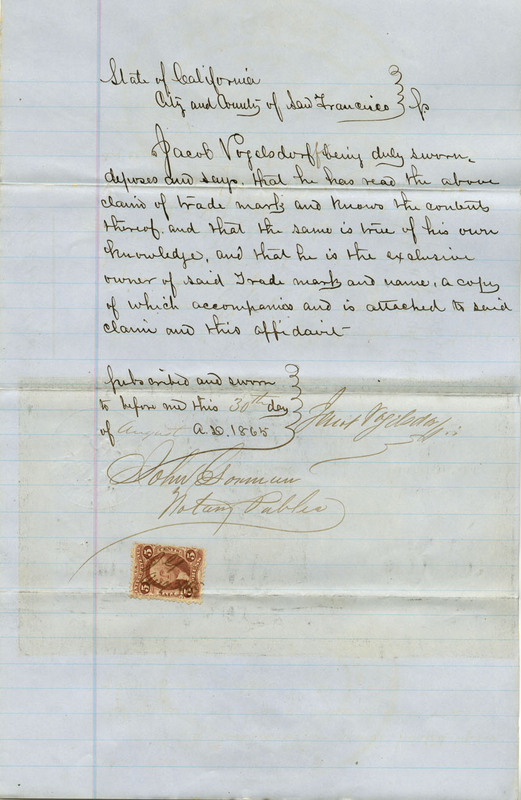 State of California
City and County of San Francisco } ss
Jacob Vogelsdorff being duly sworn,
deposes and says, that he has read the above
claim of trade mark and knows the contents
thereof, and that the same is true of his own
knowledge, and that he is the exclusive
owner of said Trade mark and name, a copy
of which accompanies and is attached to said
claim and this affidavit
Subscribed and sworn
to before me this 30th day
of August A.D. 1865
Jacob Vogelsdorff
John Gorman
Notary Public
5 5
5 5